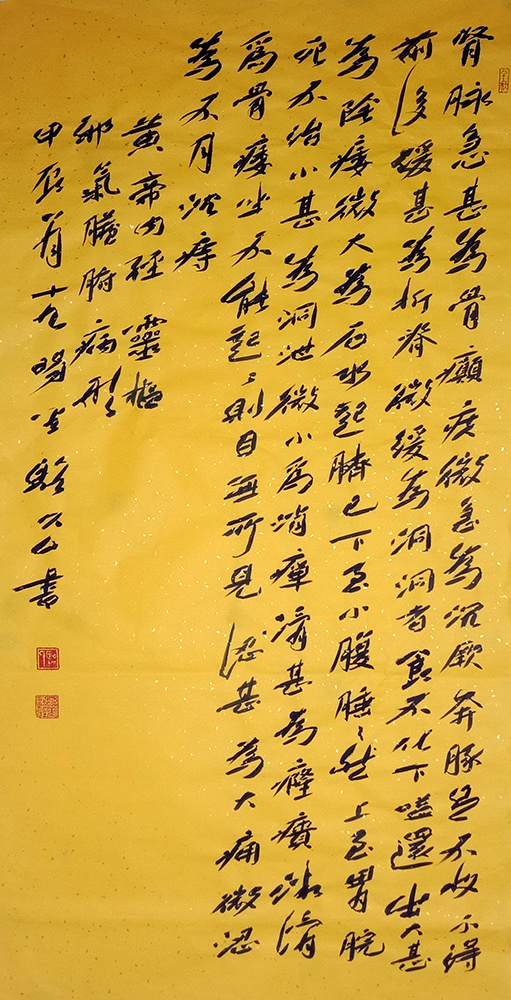 腎脉急甚為骨癲疾微急為沉厥奔豚足不收不得
前後緩甚為折脊微緩為洞洞者食不化下嗌還出大甚
為陰痿微大為石水起臍已下至小腹腄〻然上至胃脘
死不治小甚為洞泄微小為消癉滑甚為癃㿗微滑
為骨痿坐不能起〻則目無所見澀甚為大痛微澀
為不月沉痔
黃帝內經 靈樞
邪氣臟腑病形
甲辰 十九 公書